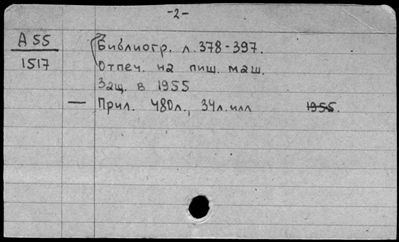 -2-
А 55
1517
Библиогр. л. 378-397.
Отпеч. на пиш. маш.
Защ. в 1955
— Прил. 480л., 34л.илл 1955.